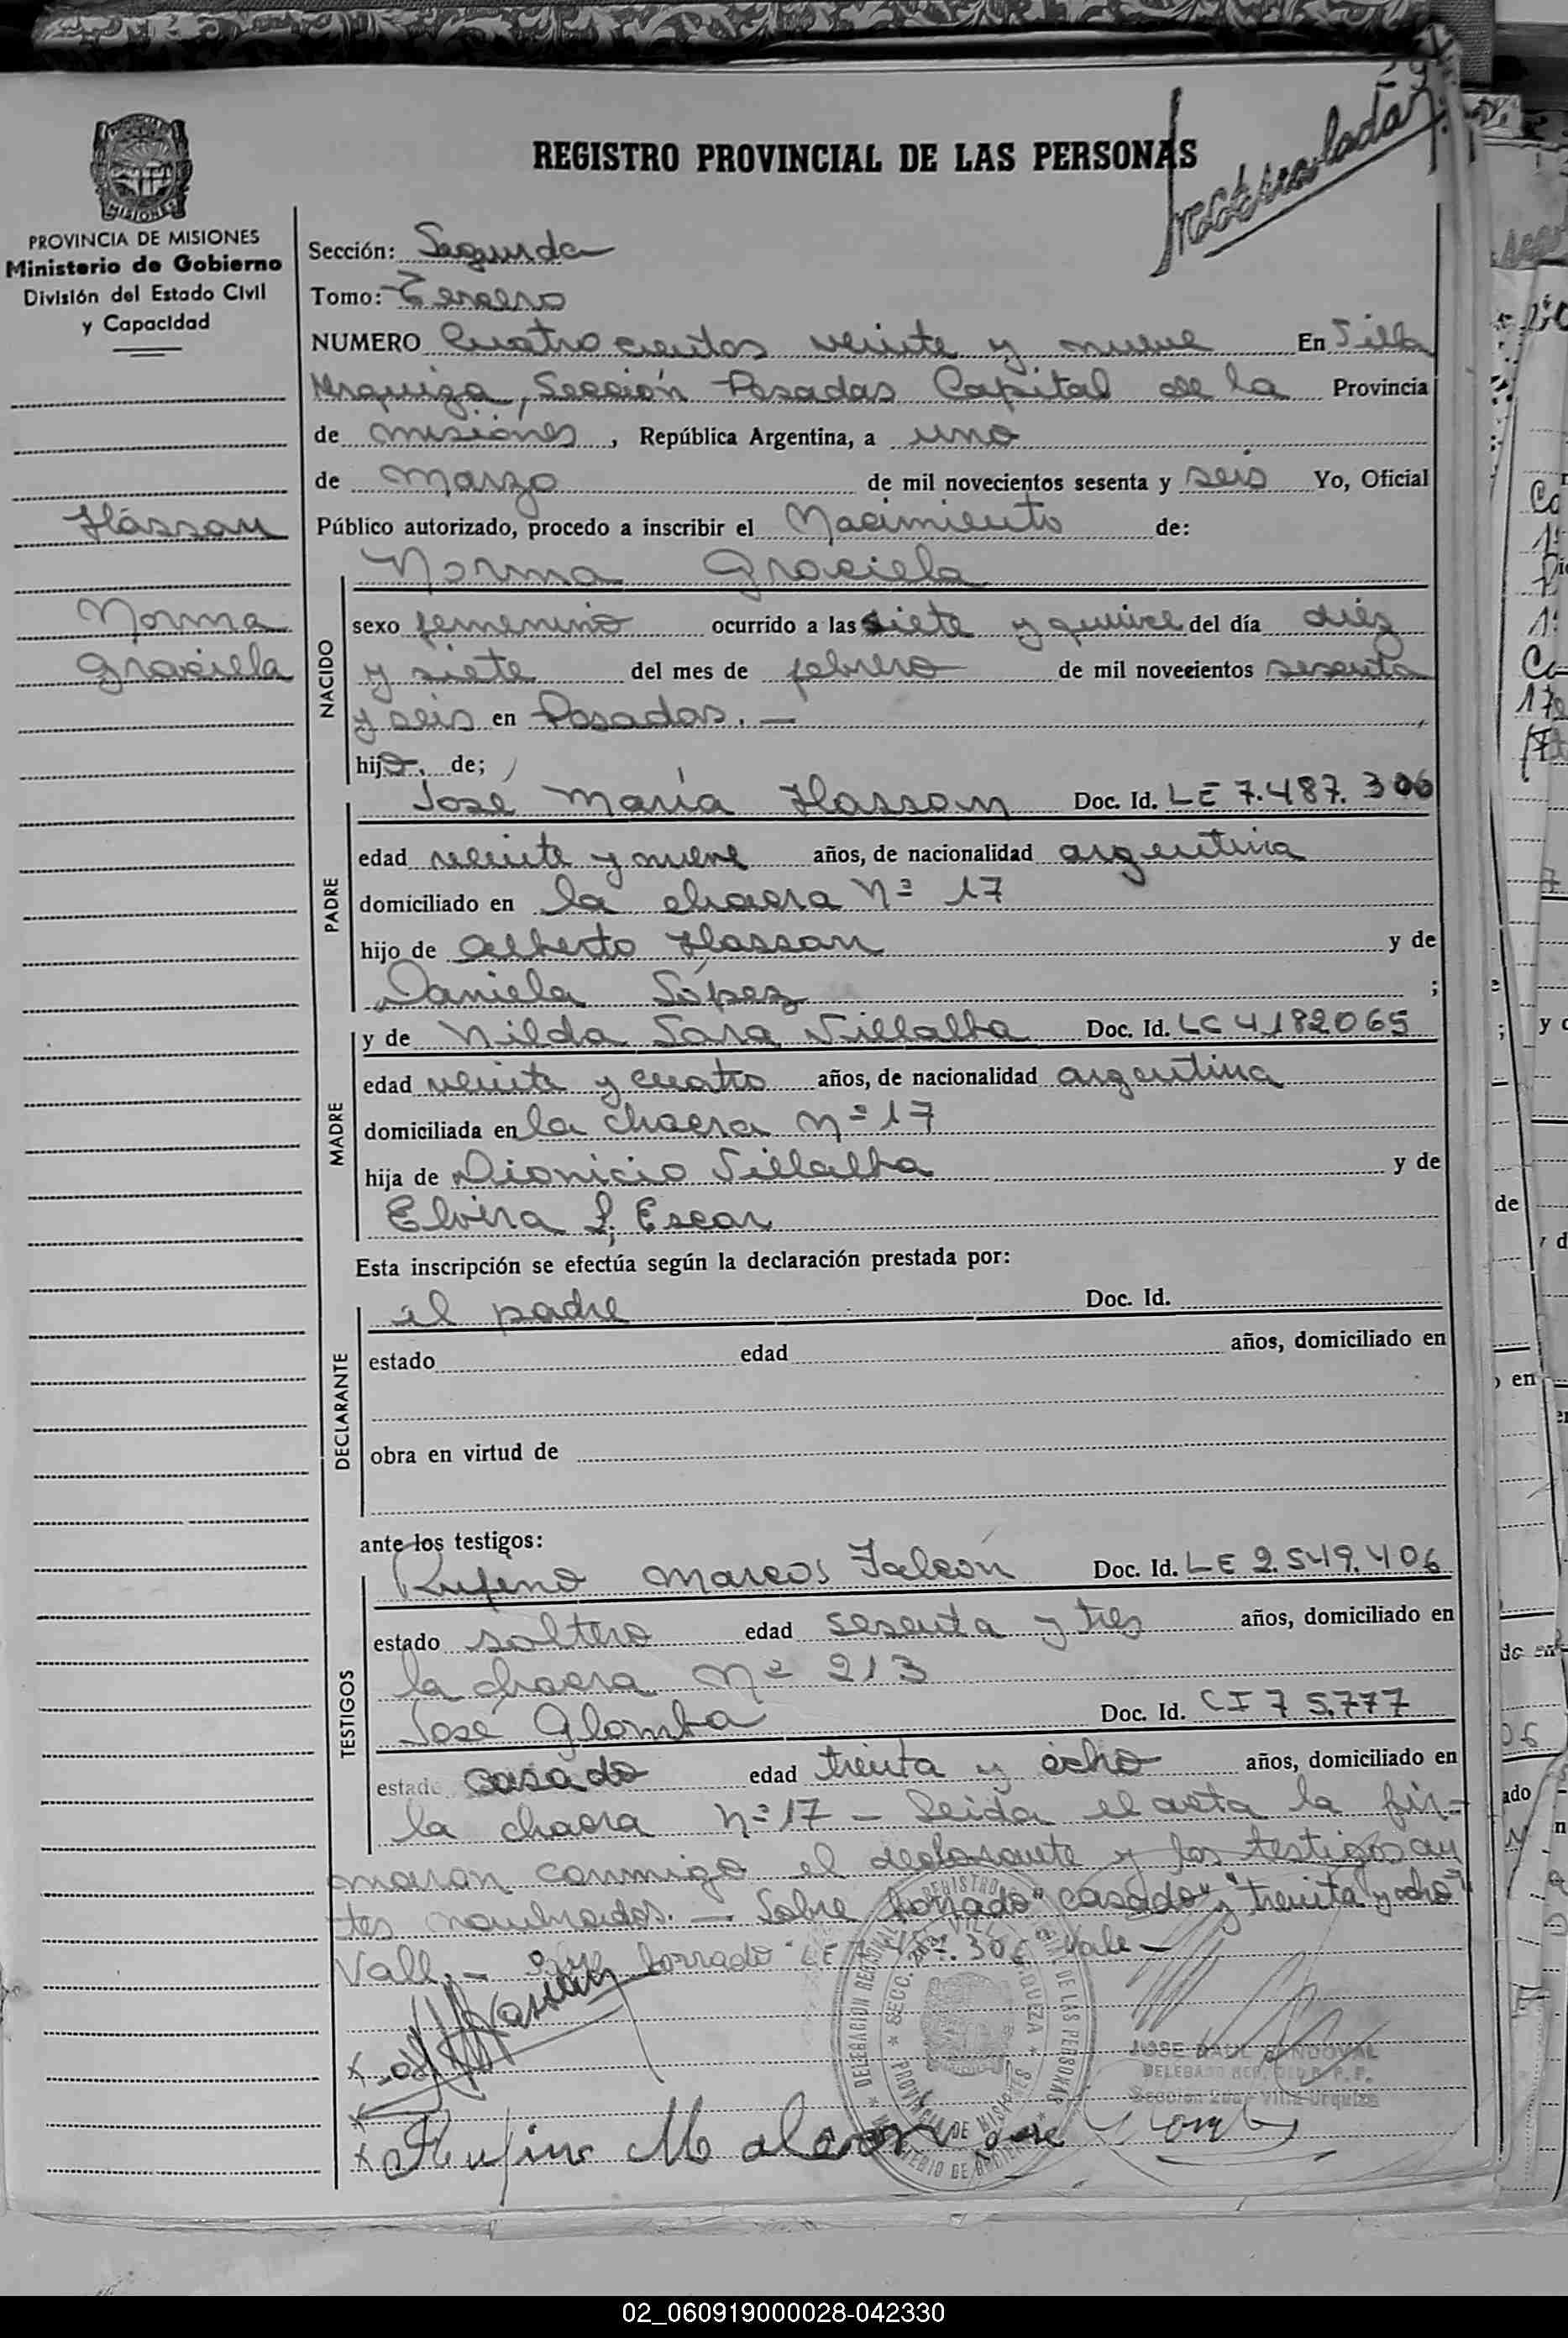 REGISTRO PROVINCIAL DE LAS PERSONAS
Matriculada
MISIONES
PROVINCIA DE MISIONES
Ministerio de Gobierno
División del Estado Civil
y Capacidad
Hassan
Norma
Graciela
Sección: Segunda
Tomo: Tercero
NUMERO Cuatrocientos veinte y nueve En Villa
Urquiza, Sección Posadas Capital de la Provincia
de misiones, República Argentina, a uno
de marzo de mil novecientos sesenta y seis Yo, Oficial
Público autorizado, procedo a inscribir el Nacimiento de:
Norma Graciela
NACIDO
sexo femenino ocurrido a las siete y quince del día diez
y siete del mes de febrero de mil novecientos sesenta
y seis en Posadas. —
hija de;
PADRE
José María Hassan Doc. Id. LE 7.487.306
edad veinte y nueve años, de nacionalidad argentina
domiciliado en la chacra Nº 17
hijo de Alberto Hassan y de
Daniela López ;
MADRE
y de Nilda Sara Villalba Doc. Id. LC 4182065
edad veinte y cuatro años, de nacionalidad argentina
domiciliada en la chacra nº 17
hija de Dionicio Villalba y de
Elvira L. Escar
Esta inscripción se efectúa según la declaración prestada por:
DECLARANTE
el padre Doc. Id.
estado edad años, domiciliado en
obra en virtud de
ante los testigos:
TESTIGOS
Rufino Marcos Falcón Doc. Id. LE 2.549.406
estado soltero edad sesenta y tres años, domiciliado en
la chacra nº 213
José Glomba Doc. Id. CI 75.777
estado casado edad treinta y ocho años, domiciliado en
la chacra nº 17 — Leída el acta la fir-
maron conmigo el declarante y los testigos an
tes nombrados. — Sobre borrado "casado" y "treinta y ocho"
Vall. — borrado "LE 7.487.306" Vale —
Hassan
JOSE RAUL SANDOVAL
Sección 2da. Villa Urquiza
Rufino M Falcon
José Glomba
02_060919000028-042330